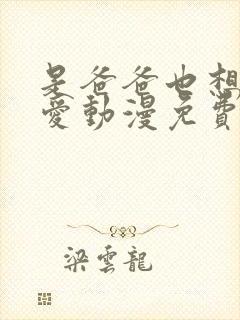 是爸爸也想
愛動漫免費
梁雲龍